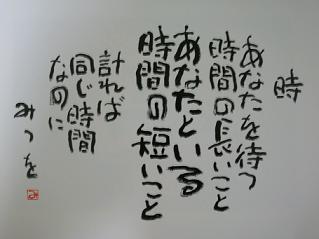 時
あなたを待つ
時間の長いこと
あなたといる
時間の短いこと
計れば
同じ時間
なのに
みつを